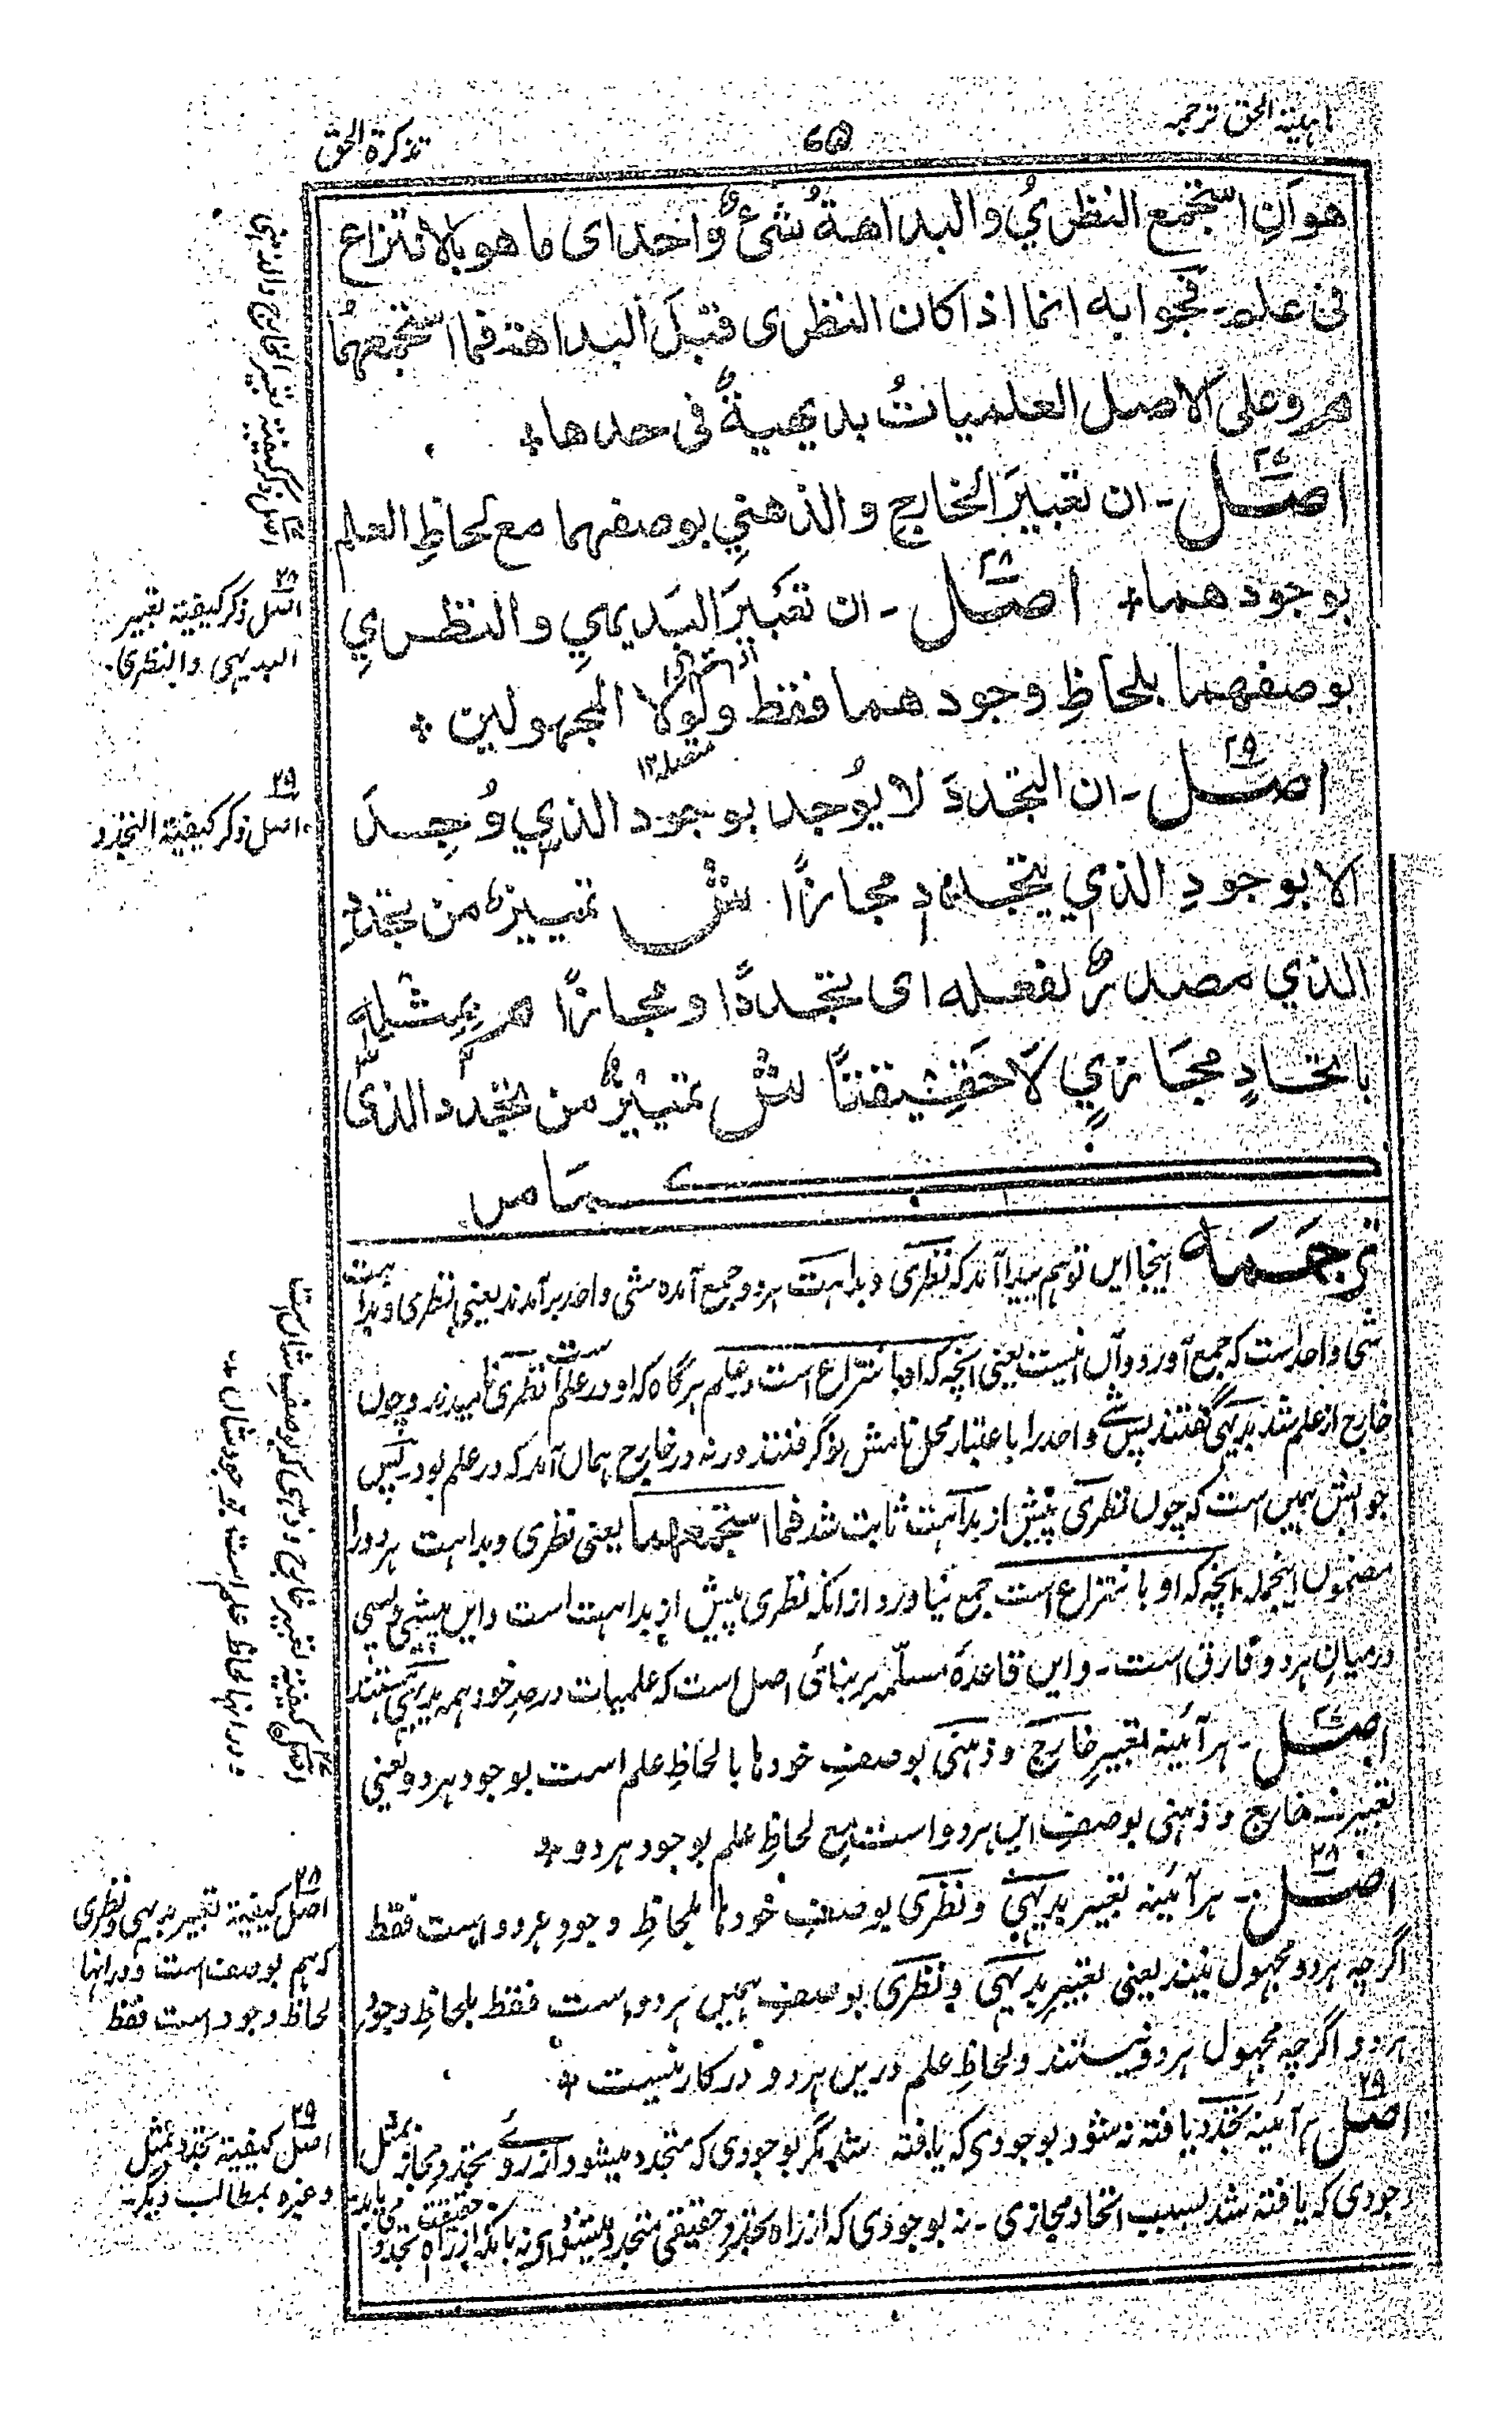 تذکرة الحق
هو ان استجمع النظري والبداهة شئ واحد ای ما هو بالانتزاع
فی علم۔ فجوابه انما اذا کان النظری قبل البداهة فما استجمعهما
هر وعلی الاصل العلمیات بدیهیة فی حدها
اصل ۔ ان تعبیر الخارج والذهني بوصفهما مع لحاظ العلم
بوجودهما
اصل ۲۸ ۔ ان تعبیر البدیهي والنظري
بوصفهما بلحاظ وجودهما فقط ولولا المجهولین
اصل ۲۹ ۔ ان التجدد لا یوجد بوجود الذي وجد
الا بوجود الذي یتجدد مجازا ش تمییز من یتجدد
الذي مصدر لفعله ای تجددا ومجازا هر بمثله
باتحاد مجازي لا حقیقتا ش تمییز من یتجدد الذی
ترجمه اینجا این توهم پیدا آمد که نظری و بداهت هردو جمع آمده شی واحد برآمدند یعنی نظری و بداهت
شی واحد است که جمع آورد و آن نیست یعنی آنچه که او با نتزاع است در علم هرگاه که او در علم است نظری نامیدند و چون
خارج از علم شد بدیهی گفتند پس شے واحد را با عتبار محل نامش نو گرفتند ورنه در خارج همان آمد که در علم بود پس
جوابش همین است که چون نظری پیش از بداهت ثابت شد فما استجمعهما یعنی نظری و بداهت هردو را
مضمون اینجمله آنچه که او با نتزاع است جمع نیاورد از انکه نظری پیش از بداهت است و این پیشی و پسی
درمیان هردو فارق است۔ و این قاعدهٔ مسلّمه بر بنائی اصل است که علمیات در حد خود همه بدیهی هستند
اصل ۔ هر آئینه تعبیر خارج و ذهنی بوصف خودها با لحاظ علم است بوجود هردو یعنی
تعبیر خارج و ذهنی بوصف این هردو است مع لحاظ علم بوجود هردو
اصل ۲۸ ۔ هر آئینه تعبیر بدیهی و نظری بوصف خودها بلحاظ وجود هردو است فقط
اگرچه هردو مجهول نیند یعنی تعبیر بدیهی و نظری بوصف همین هردو است فقط بلحاظ وجود
هردو اگرچه مجهول هردو نیستند و لحاظ علم درین هردو درکار نیست
اصل ۲۹ هر آئینه تجدد یافته نه شود بوجودی که یافته شد مگر بوجودی که متجدد میشود از روئے تجدد مجاز بمثل
وجودی که یافته شد بسبب اتحاد مجازی۔ نه بوجودی که از راه تجدد حقیقی متجدد میشود
۲۸
اصل ذکر کیفیة تعبیر
البدیهی والنظری
۲۹
اصل ذکر کیفیة التجدد
۲۸
اصل کیفیة تعبیر بدیهی و نظری
که هم بوصف است و درانها
لحاظ وجود است فقط
۲۹
اصل کیفیة تجدد بمثل
وغیره بمطالب دیگر